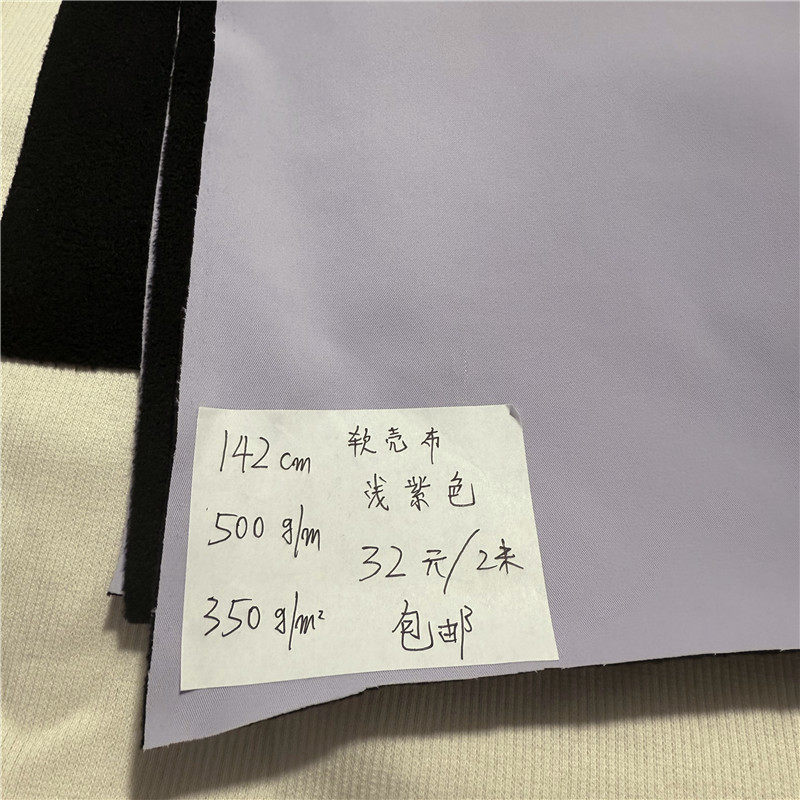 142 cm 软壳布
浅紫色
500 g/m
32元/2米
350 g/m²
包邮